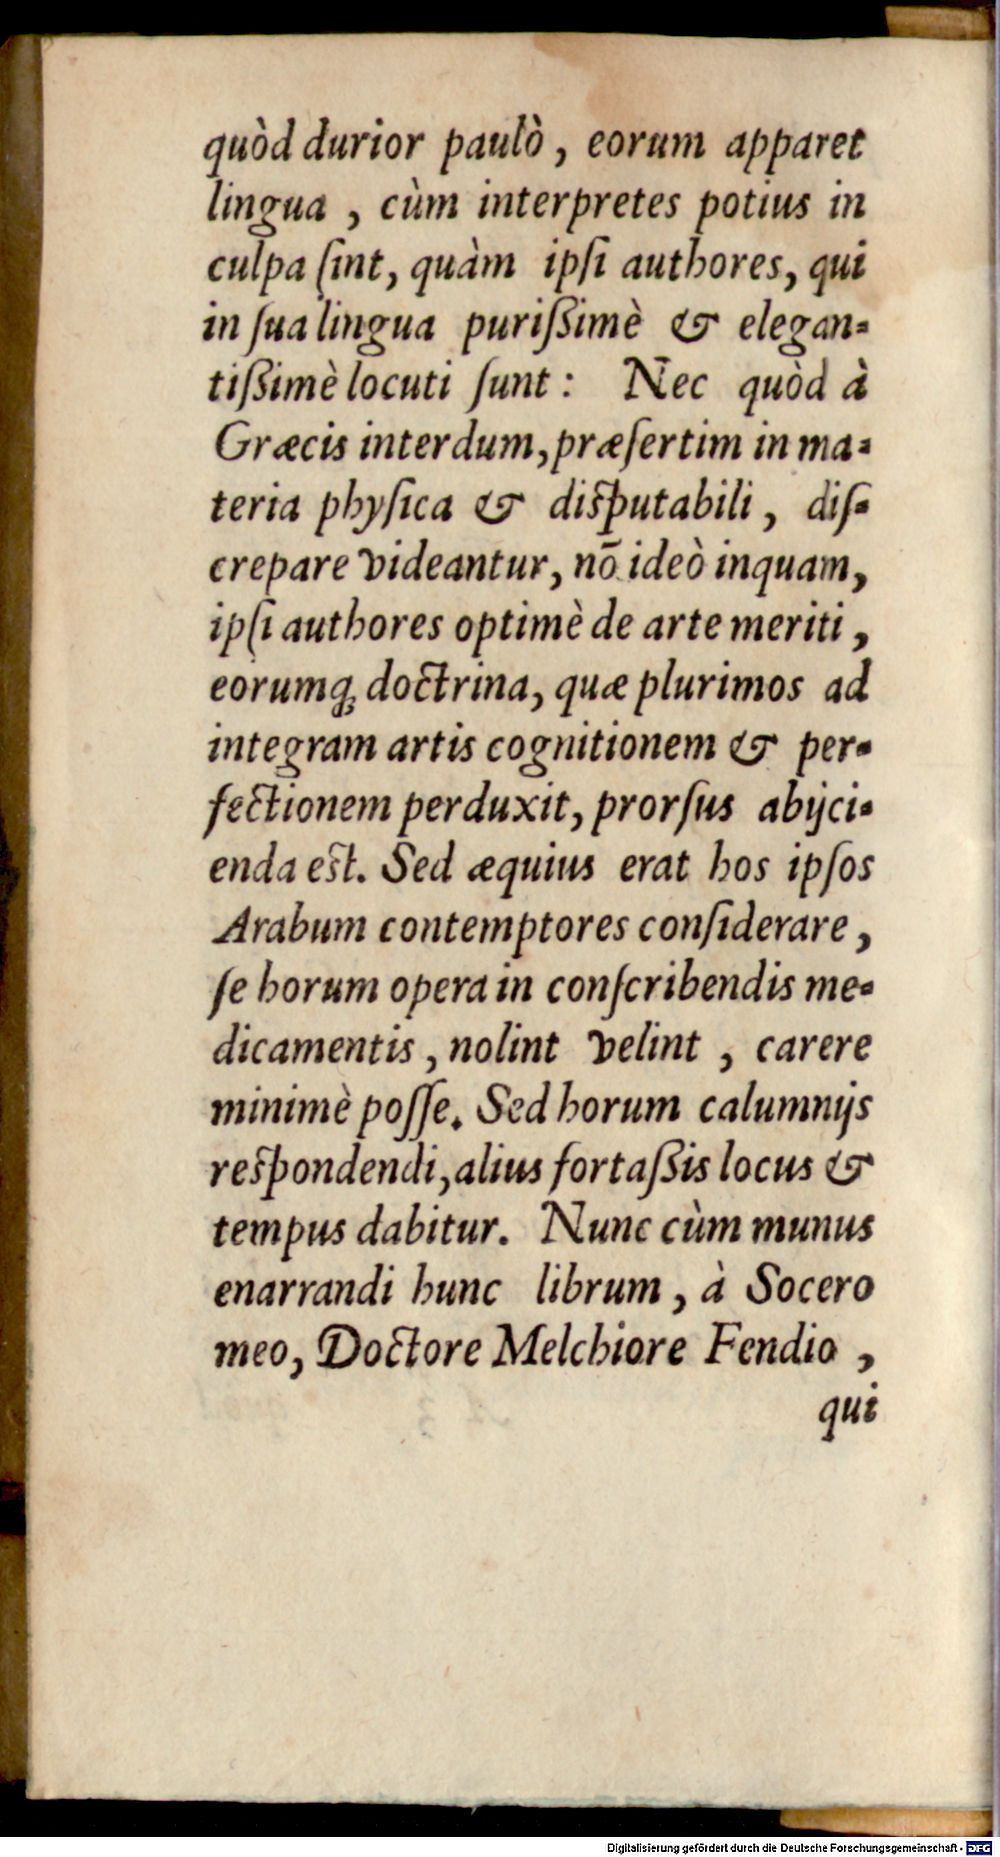 quòd durior paulò, eorum apparet
lingua, cùm interpretes potius in
culpa ſint, quàm ipſi authores, qui
in ſua lingua purißimè & elegan-
tißimè locuti ſunt: Nec quòd à
Græcis interdum, præſertim in ma-
teria phyſica & diſputabili, diſ-
crepare videantur, nō ideò inquam,
ipſi authores optimè de arte meriti,
eorumq́; doctrina, quæ plurimos ad
integram artis cognitionem & per-
fectionem perduxit, prorſus abijci-
enda eſt. Sed æquius erat hos ipſos
Arabum contemptores conſiderare,
ſe horum opera in conſcribendis me-
dicamentis, nolint velint, carere
minimè poſſe. Sed horum calumnijs
reſpondendi, alius fortaßis locus &
tempus dabitur. Nunc cùm munus
enarrandi hunc librum, à Socero
meo, Doctore Melchiore Fendio,
qui
Digitalisierung gefördert durch die Deutsche Forschungsgemeinschaft - DFG